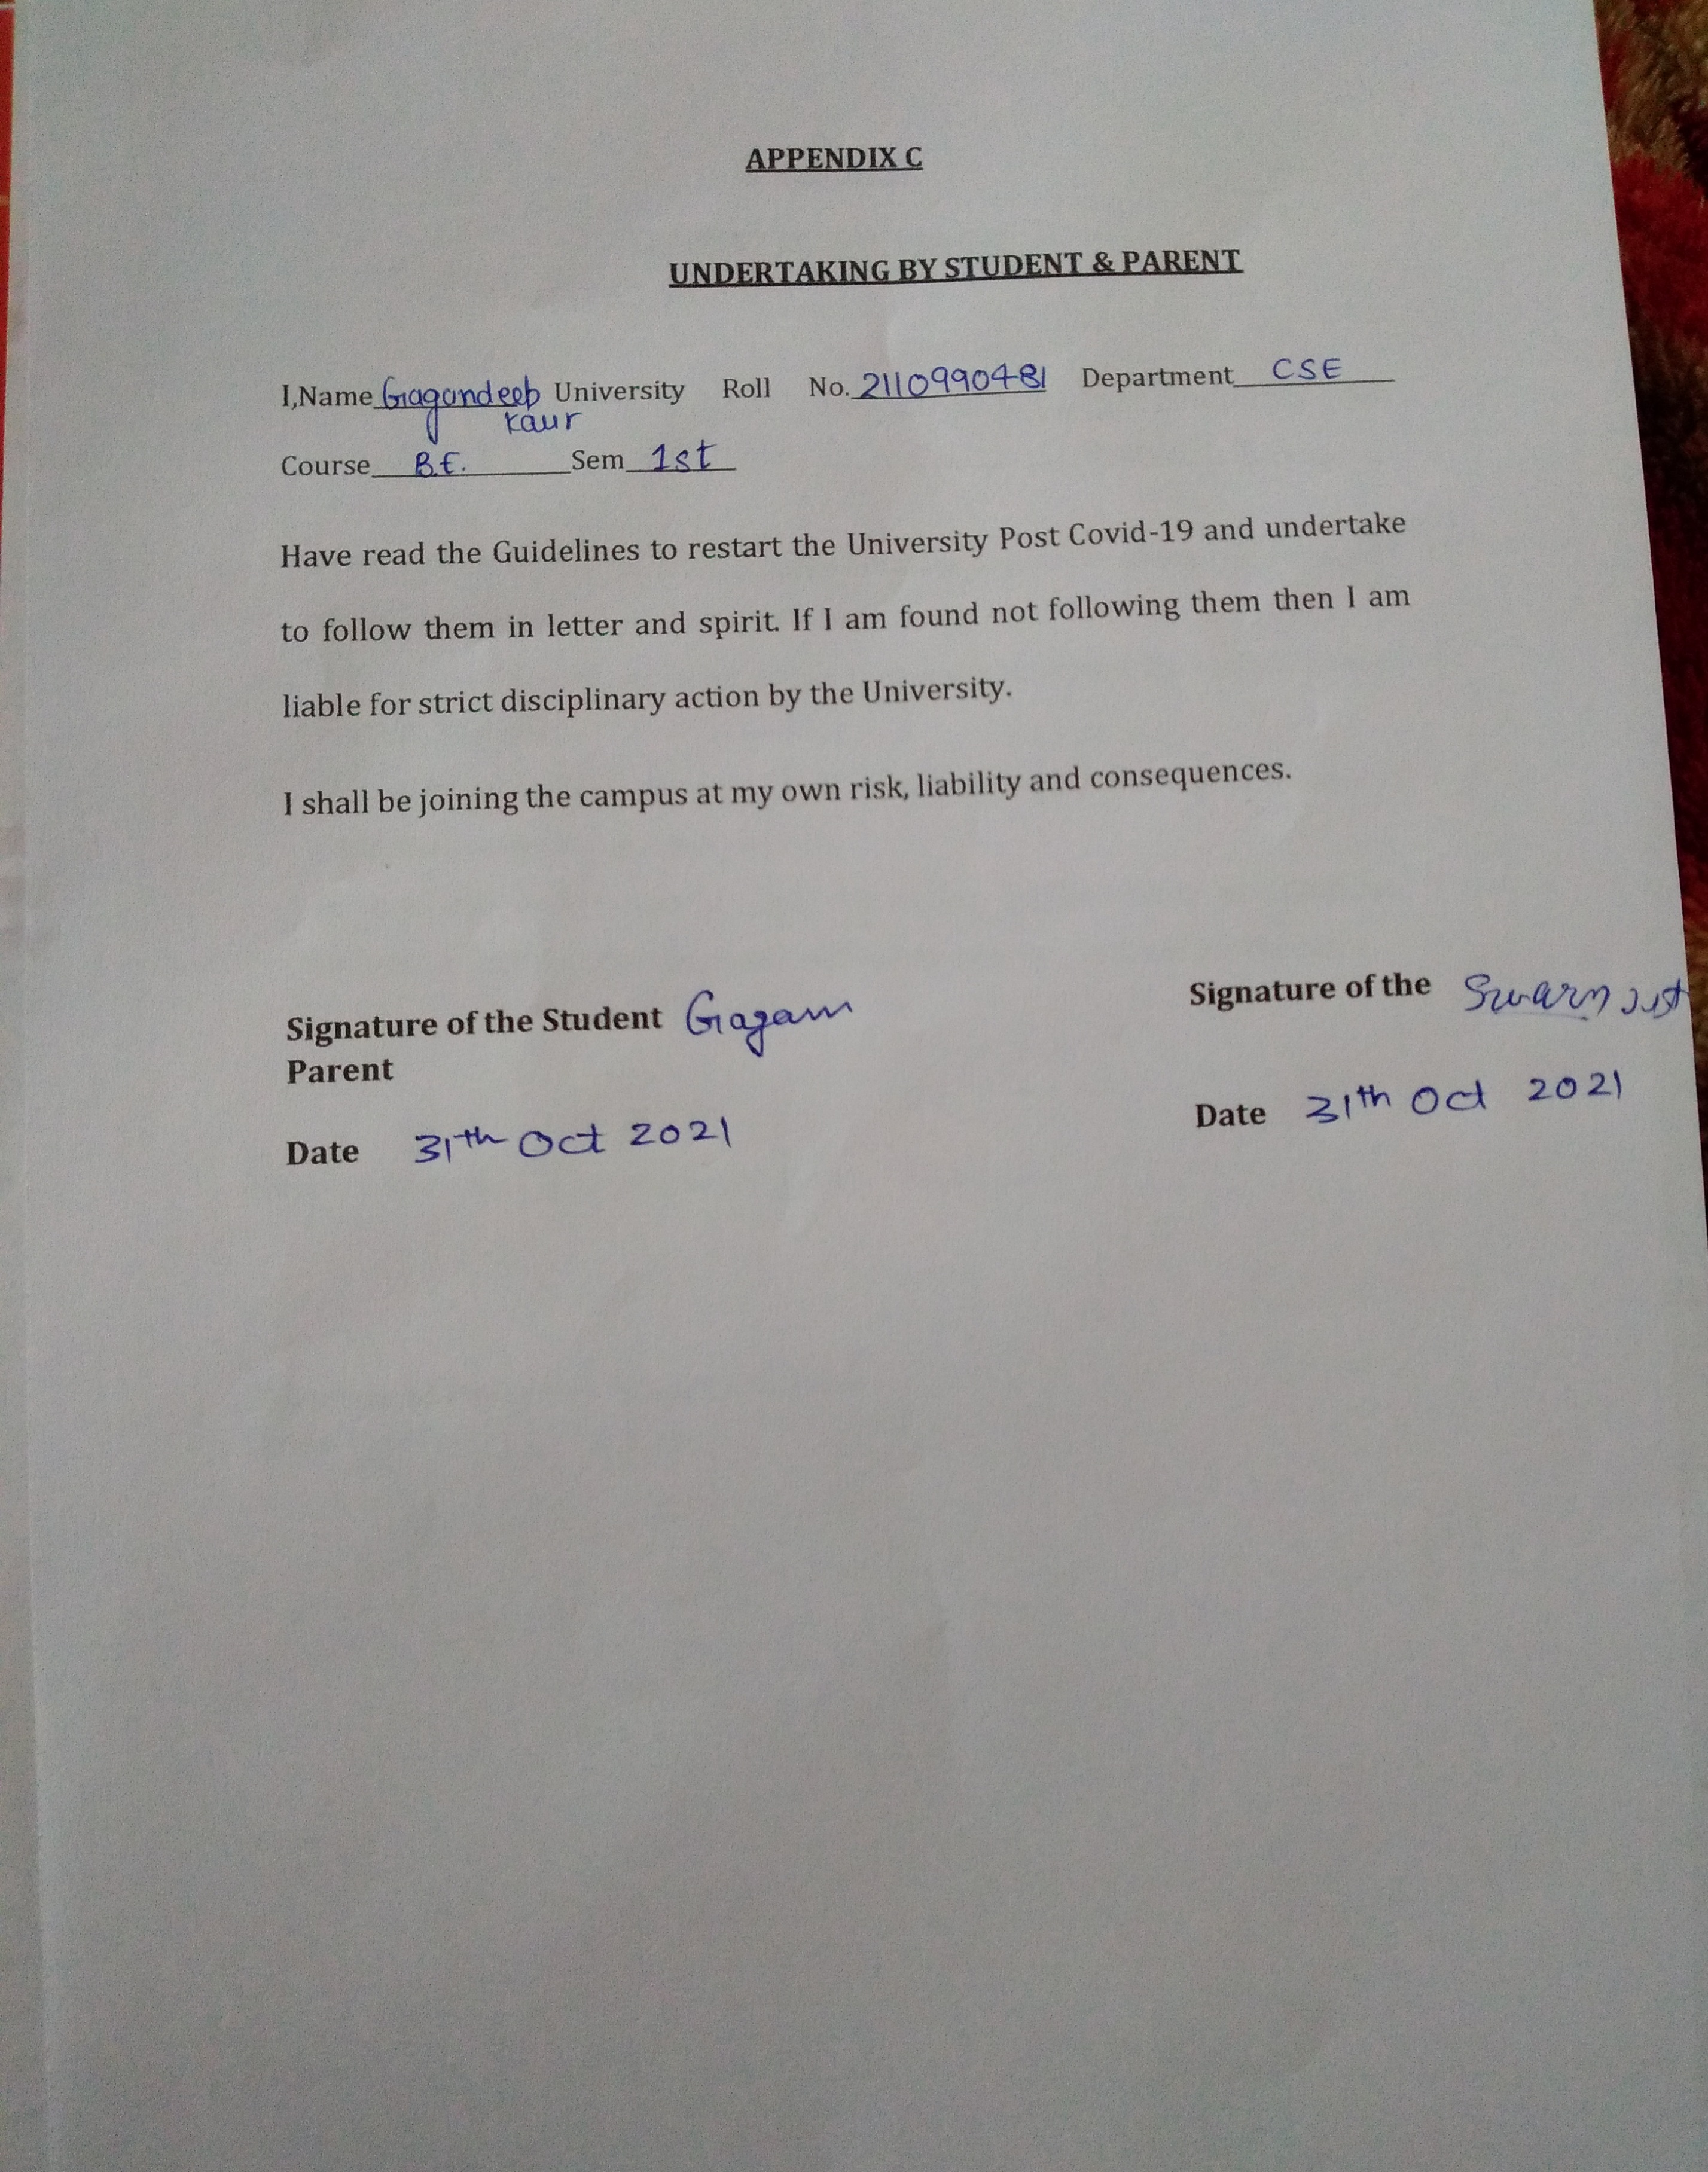 APPENDIX C
UNDERTAKING BY STUDENT & PARENT
I,Name Gagandeep University Roll No. 2110990481 Department CSE
Kaur
Course B.E. Sem 1st
Have read the Guidelines to restart the University Post Covid-19 and undertake
to follow them in letter and spirit. If I am found not following them then I am
liable for strict disciplinary action by the University.
I shall be joining the campus at my own risk, liability and consequences.
Signature of the Student Gagan Signature of the Swarn
Parent
Date 31th Oct 2021 Date 31th Oct 2021